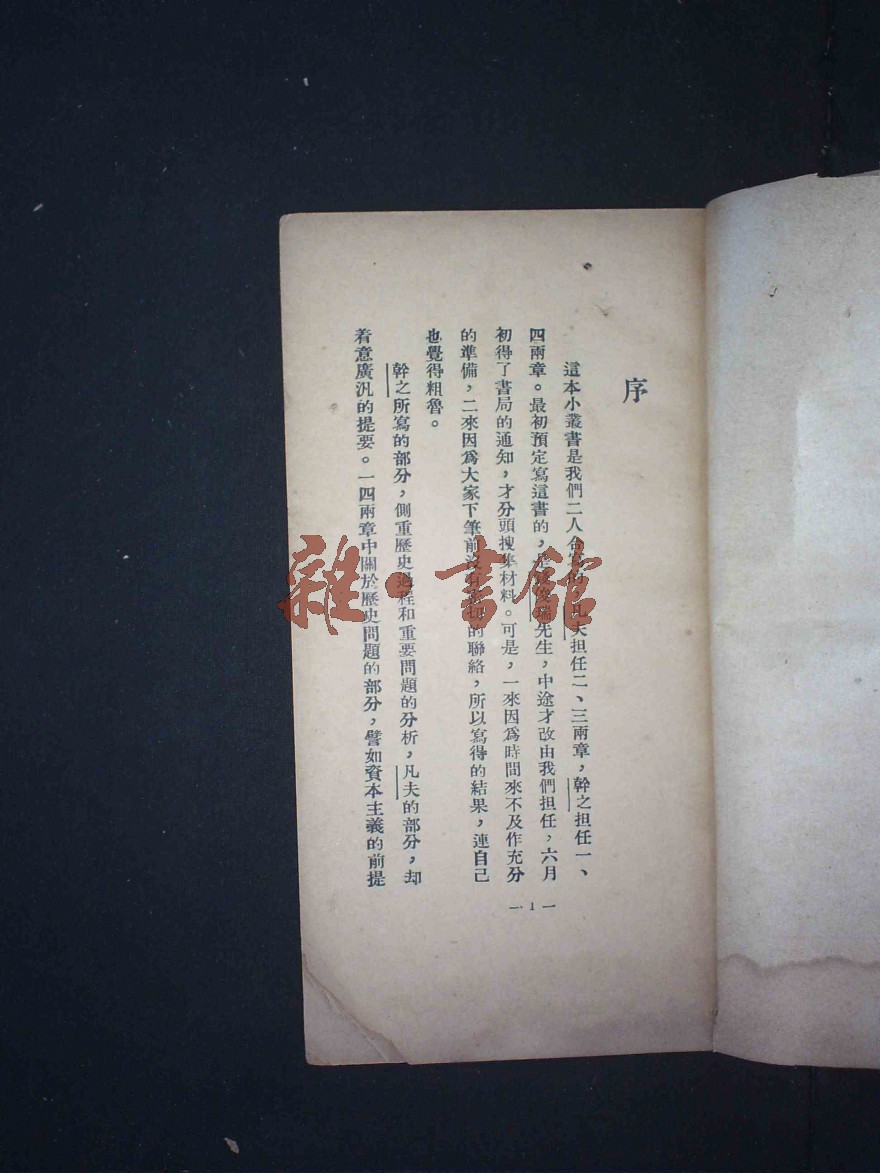 序
這本小叢書是我們二人合寫的，凡夫担任二、三兩章，幹之担任一、
四兩章。最初預定寫這書的，是先生，中途才改由我們担任，六月
初得了書局的通知，才分頭搜集材料。可是，一來因爲時間來不及作充分
的準備，二來因爲大家下筆前沒有的聯絡，所以寫得的結果，連自己
也覺得粗魯。
幹之所寫的部分，側重歷史過程和重要問題的分析，凡夫的部分，却
着意廣汎的提要。一四兩章中關於歷史問題的部分，譬如資本主義的前提
— 1 —
雜·書館